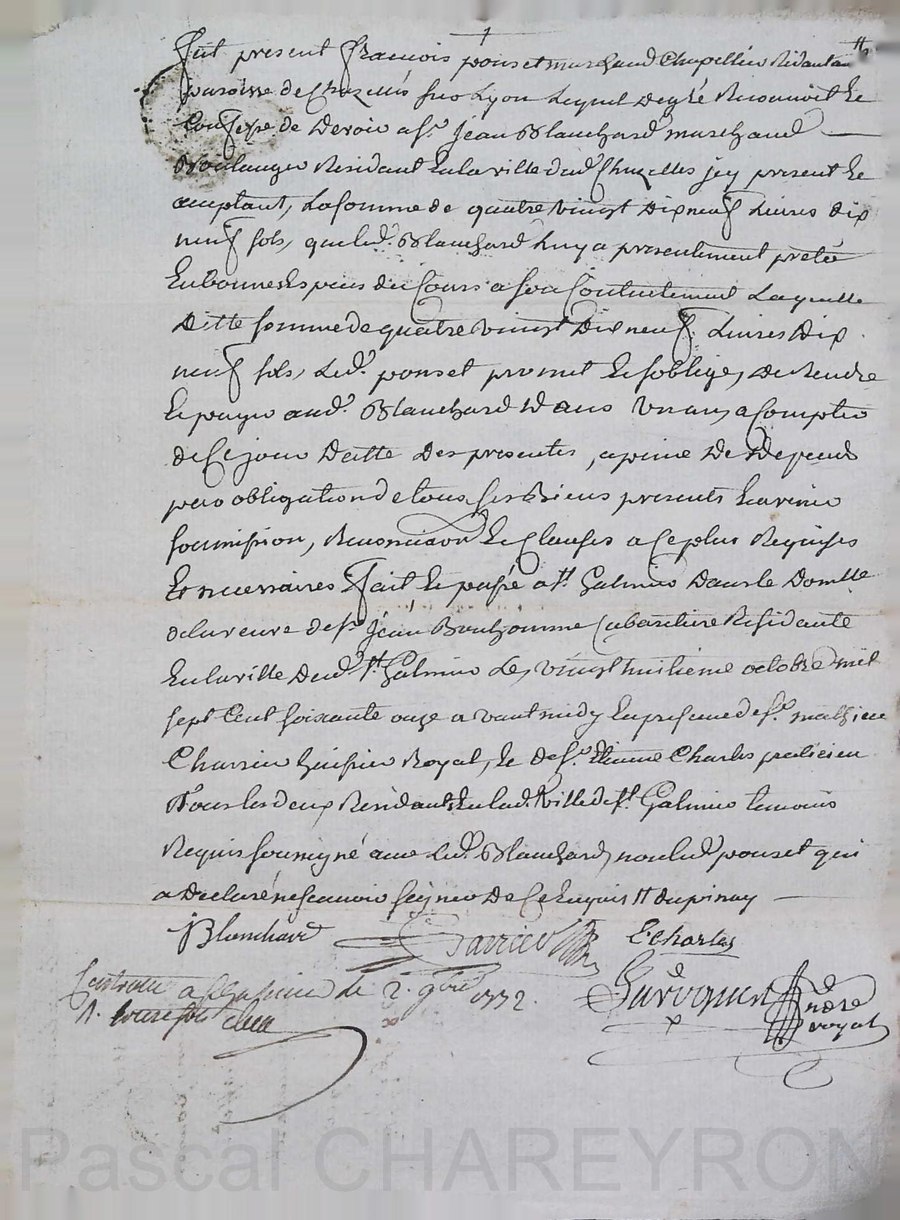 Fut present francois ponset marchand Chapellier Residant en
parroisse de Chazelles sur Lyon Lequel de gré Reconnoit Et
Confesse de Devoir a sr. Jean Blanchard marchand
Boulanger Residant En la ville dud. Chazelles jcy present Et
acceptant, La somme de quatre vingt Dix neuf Livres dix
neuf sols, que led. Blanchard Luy a presentement preté
En bonnes Especes du Cours a son Contentement Laquelle
Ditte somme de quatre vingt Dix neuf Livres Dix
neuf sols, Led. ponset promet Et s'oblige, de Rendre
Et payer aud. Blanchard Dans Un an, a Compter
de Ce jour Datte Des presentes, a peine De Depens
par obligation de tous ses Biens presents Et avenir
soumission, Renonciaon Et Clauses a Ce plus Requises
Et necessaires fait Et passé a St. Galmier Dans le Domlle
de la veuve de sr. Jean Bonhomme Cabaretiere Residante
En la ville Dud. St. Galmier Le, vingt huitieme octobre mil
sept Cent soixante onze avant midy En presence de sr. mathieu
Charrier huissier Royal, Et de sr. Etienne Charles praticien
Tous les deux Residants En lad. ville de St. Galmier temoins
Requis soussigné avec Led. Blanchard, non led. ponset qui
a Declaré ne scavoir signer De Ce Enquis
JBlanchard Charrier E Charles
Controllé a St Galmier le 2. 9bre 1772.
R. treize sols
nore
royal
Pascal CHAREYRON